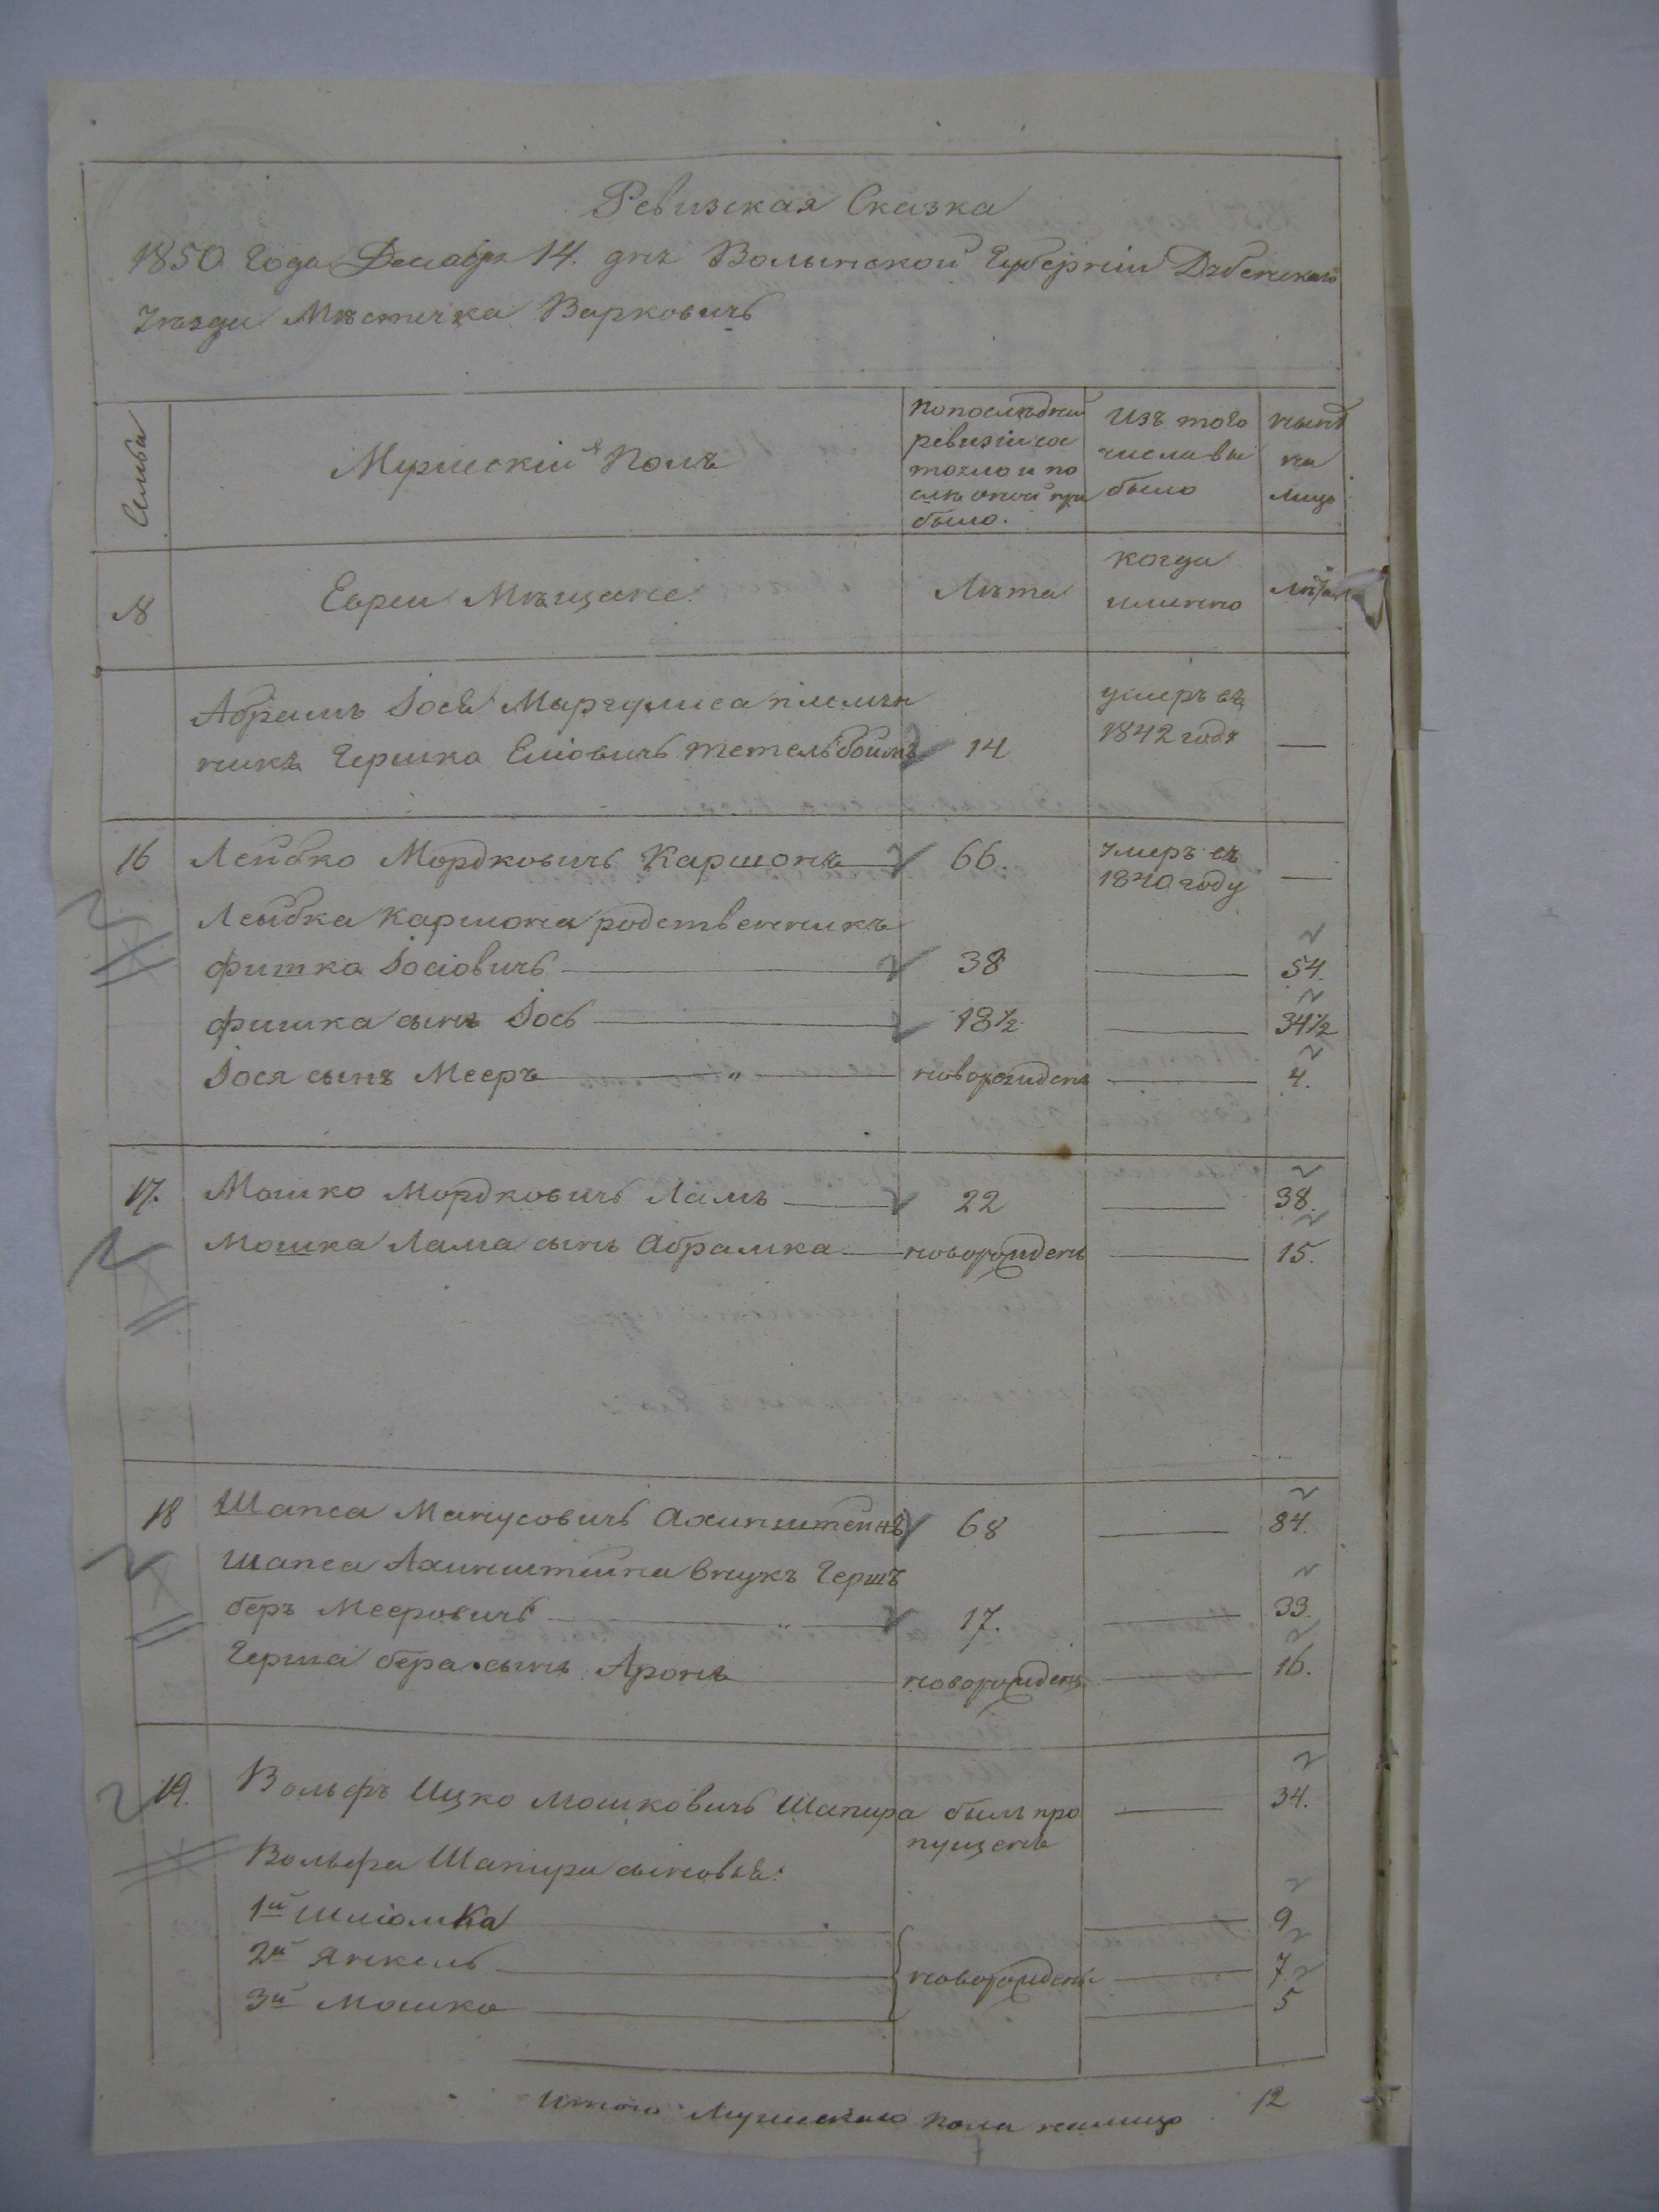 Ревизская Сказка
1850 Года Декабря 14. дня Волынской Губернiи Дубенскаго
Уѣзда Мѣстечка Варковичъ
Семьи
Мужескiй Полъ
по последней
ревизiи сос
тояло и по
слѣ оной при
было.
Изъ того
числа вы
было
нынѣ
на
лицо
№
Евреи Мѣщане.
Лѣта
когда
именно
Лѣта
Абрамъ Iося Маргулиса племян
никъ Гершко Елiовичь Тетельбоймъ 14
умеръ въ
1842 годѣ —
16 Лейбко Мордковичь Каршонъ 66.
умеръ въ
1840 году —
Лейбка Каршона родственникъ
Фишка Iосiовичь 38 — 54.
Фишка сынъ Iось 18½ — 34½
Iося сынъ Мееръ " новорожденъ — 4.
17. Мошко Мордковичь Ламъ 22 — 38.
Мошка Лама сынъ Абрамка новорожденъ — 15.
18 Шапса Манусовичь Ахинштейнъ 68 — 84.
Шапса Ахинштейна внукъ Гершъ
беръ Мееровичь " 17. — 33.
Герша бера сынъ Аронъ новорожденъ — 16.
19. Вольфъ Ицко Мошковичь Шапира былъ про — 34.
пущенъ
Вольфа Шапира сыновья:
1й Шлiомка — 9
2й Янкель новорожденъ — 7
3й Мошко — 5
Итого Мужескаго пола налицо 12